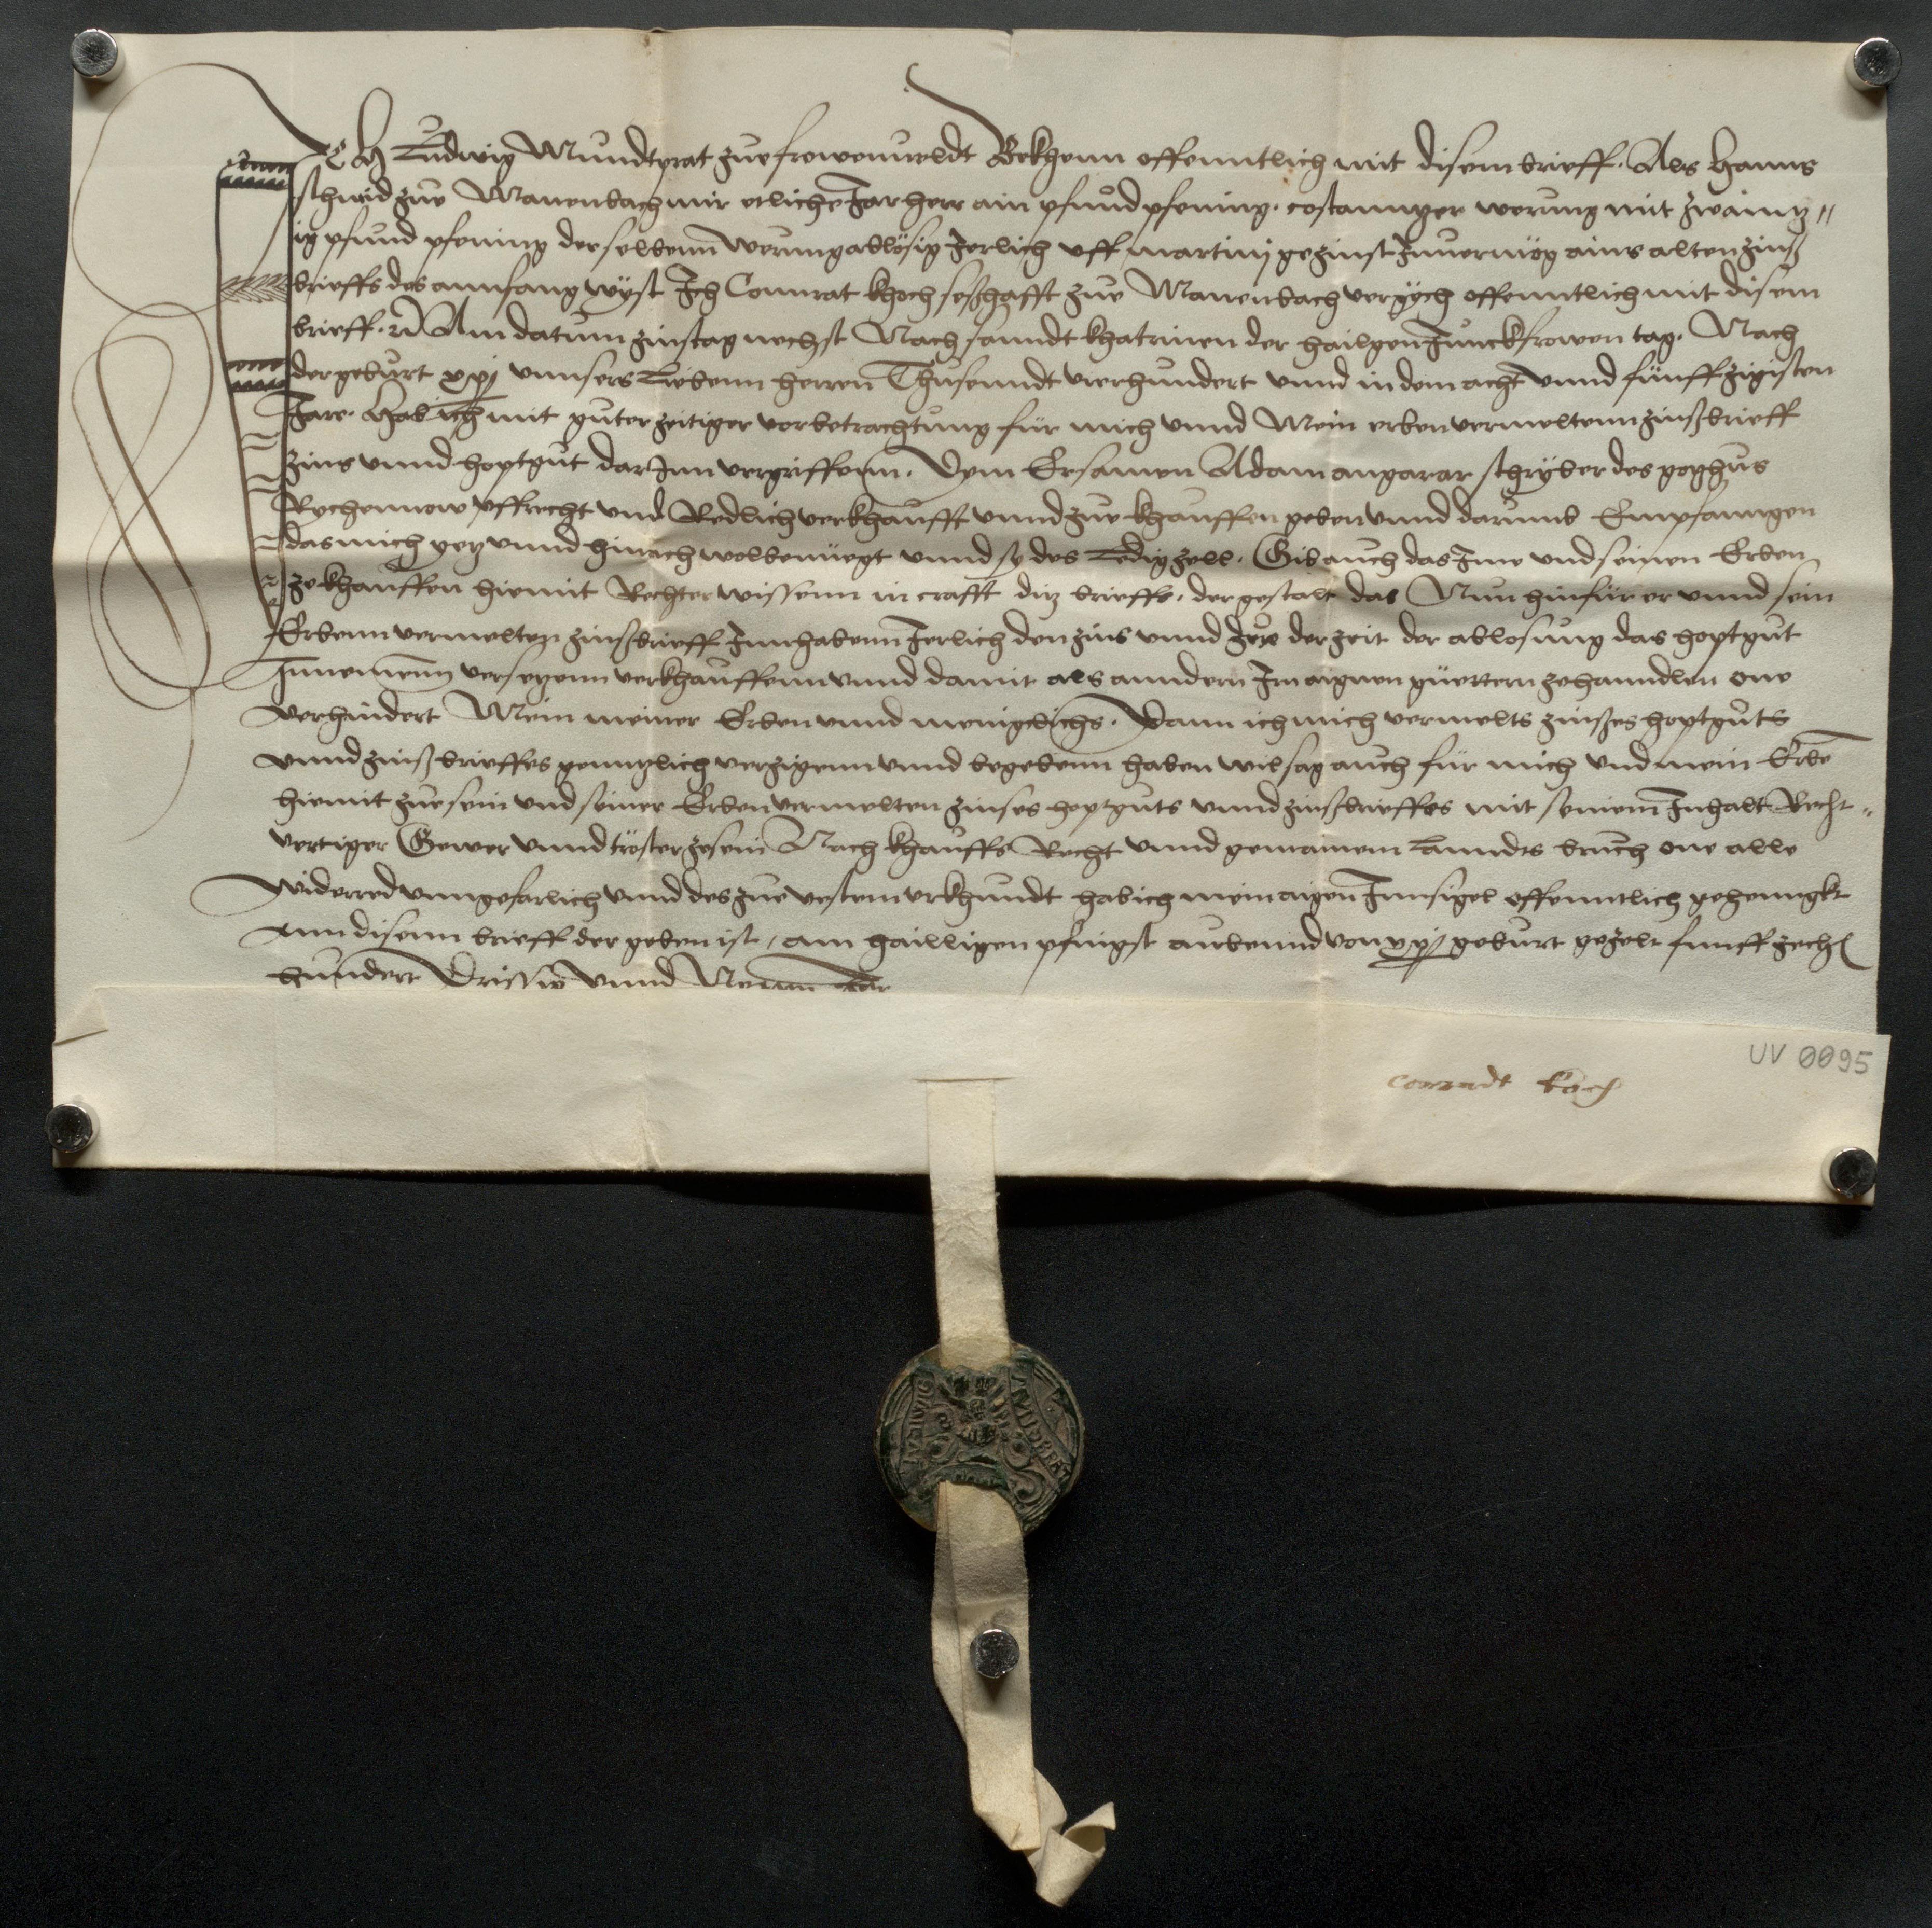 Ich Ludwig Mundtprat zue frowenveldt Bekhenn offenntlich mit disem brieff. Als Hanns
schmid zue Manenbach mir etliche Jar herr ain pfund pfening. costannzer werung mit zwaintz"
ig pfund pfening derselbenn werung ablösig Jerlich uff martinj gezinst Innvermög ains alten zinß
brieffs des annfang wyst Ich Connrat khoch seßhafft zue Manenbach vergych offenntlich mit disem
brieff. Am datum zinstag nechst Nach sanndt khatrinen der hailgen Junckfrowen tag. Nach
der geburt xpi unnsers Liebenn herren Thusenndt vierhundert unnd in dem acht unnd fünffzigisten
Jare. Hab ich mit guter zeitiger vorbetrachtung für mich unnd Mein erben vermeltenn zinßbrieff
zins unnd hoptgut dar Inn vergriffenn. Dem Ersamen Adam angarar schryber des gozhus
Rychennow uffrecht und Redlich verkhaufft unnd zue khauffen geben unnd darumb Empfanngen
das mich yetz unnd hinach wolbenüegt unnd sy des Ledig zell. Gib auch das Ime und seinen Erben
ze khauffen hiemit Rechter wissenn in crafft ditz brieffs. der gestalt das Nun hinfür er unnd sein
Erbenn vermelten zinßbrieff Innhabenn Jerlich den zins unnd der zeit der ablosung das hoptgut
Innemenn versetzenn verkhauffenn unnd damit als anndern Im aignen güettern zehanndlen one
verhindert Mein meiner Erben unnd menigclichs. Dann ich mich vermelts zinßes hoptguts
unnd zinßbrieffes genntzlich verzigenn unnd begebenn haben wil sag auch für mich und mein Erbe
hiemit zue sein und seiner Erben vermelten zinses hoptguts unnd zinßbrieffes mit seinem Inhalt Recht"
vertiger Gewer unnd tröster zesein Nach khauffs Recht unnd gemainem Lanndts bruch one alle
widerred unngefarlich unnd des zue vestem urkhundt hab ich mein aigen Innsigel offenntlich gehenngkt
ann disenn brieff der geben ist, am hailligen pfingst aubennd von xpi geburt gezelt funffzech
hundert Drissig unnd Neun Jar
UV 0095
conradt koch